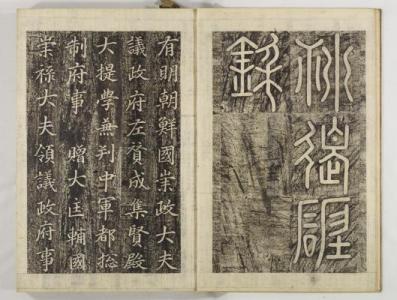 有明朝鮮國崇政大夫
議政府左贊成集賢殿
大提學兼判中軍都捴
制府事 贈大匡輔國
崇祿大夫領議政府事